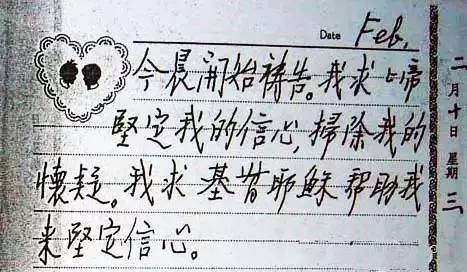 Date Feb.
今晨開始禱告。我求上帝
堅定我的信心,掃除我的
懷疑。我求基督耶穌幫助我
来堅定信心。
二月十日 星期三